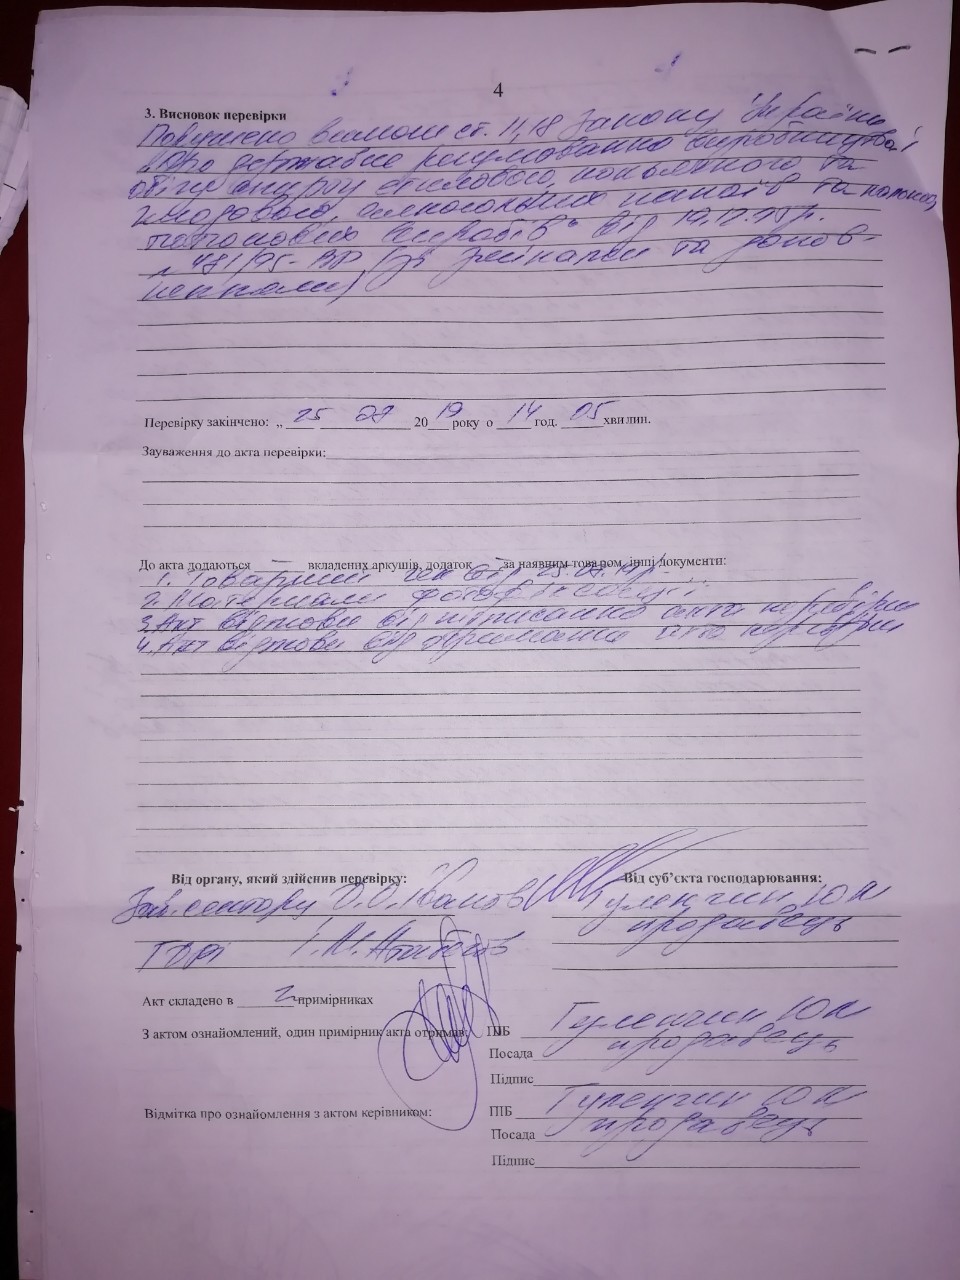 4
3. Висновок перевірки
Порушено вимоги ст. 11, 18 Закону України
"Про державне регулювання виробництва і
обігу спирту етилового, коньячного та
плодового, алкогольних напоїв та
тютюнових виробів" від 19.12.95р.
№ 481/95-ВР (зі змінами та допов-
неннями)
Перевірку закінчено: „ 25 20 19 року о 14 год. 05 хвилин.
Зауваження до акта перевірки:
До акта додаються — вкладених аркушів, додаток — за наявним товаром, інші документи:
1. Товарний чек від 25.
2. Матеріали фотофіксації
3. Акт відмови від підписання акта перевірки
4. Акт відмови від отримання акта перевірки
Від органу, який здійснив перевірку:
Від суб’єкта господарювання:
сектору О.О. Іванов
Гуленчин Ю А
продавець
Акт складено в 2 примірниках
З актом ознайомлений, один примірник акта отримав: ПІБ Гуленчин Ю А
Посада продавець
Підпис
Відмітка про ознайомлення з актом керівником: ПІБ Гуленчин Ю А
Посада продавець
Підпис